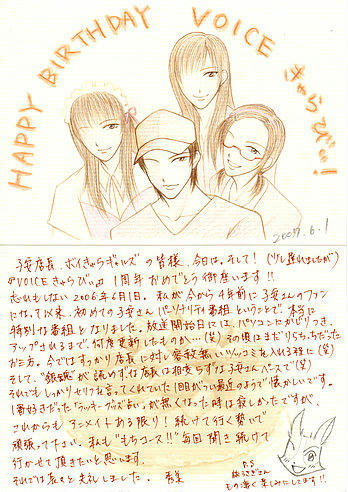 HAPPY BIRTHDAY VOICE きゃらびぃ!
2007.6.1
子安店長、ボイきゃらギャルズの皆様、今日は。そして!(少し遅れましたが)
『VOICEきゃらびぃ』1周年おめでとう御座います!!
忘れもしない2006年6月1日。私が今から4年前に子安さんのファン
になって以来、初めての子安さんパーソナリティ番組ということで、本当に
特別な番組となりました。放送開始日には、パソコンにかじりつき、
アップされるまで何度更新したものか…(笑)その頃はまだ
お三方。今ではすっかり店長に対し容赦無いツッコミを入れる程に(笑)
そして、"銀魂"が読めずな店長は相変らずな子安さんペースで(笑)
それでもしっかりセリフを言ってくれていた1回目がつい最近のようで懐かしいです。
1番好きだった"ラッキーグッズ占い"が無くなった時は寂しかったですが、
これからもアニメイトある限り!続けて行く勢いで
頑張って下さい。私も"もちコース!!"毎回聞き続けて
行かせて頂きたいと思います。
それでは長々と失礼しました。
P.S
うさぎさん
もの凄く楽しみにしてます!!